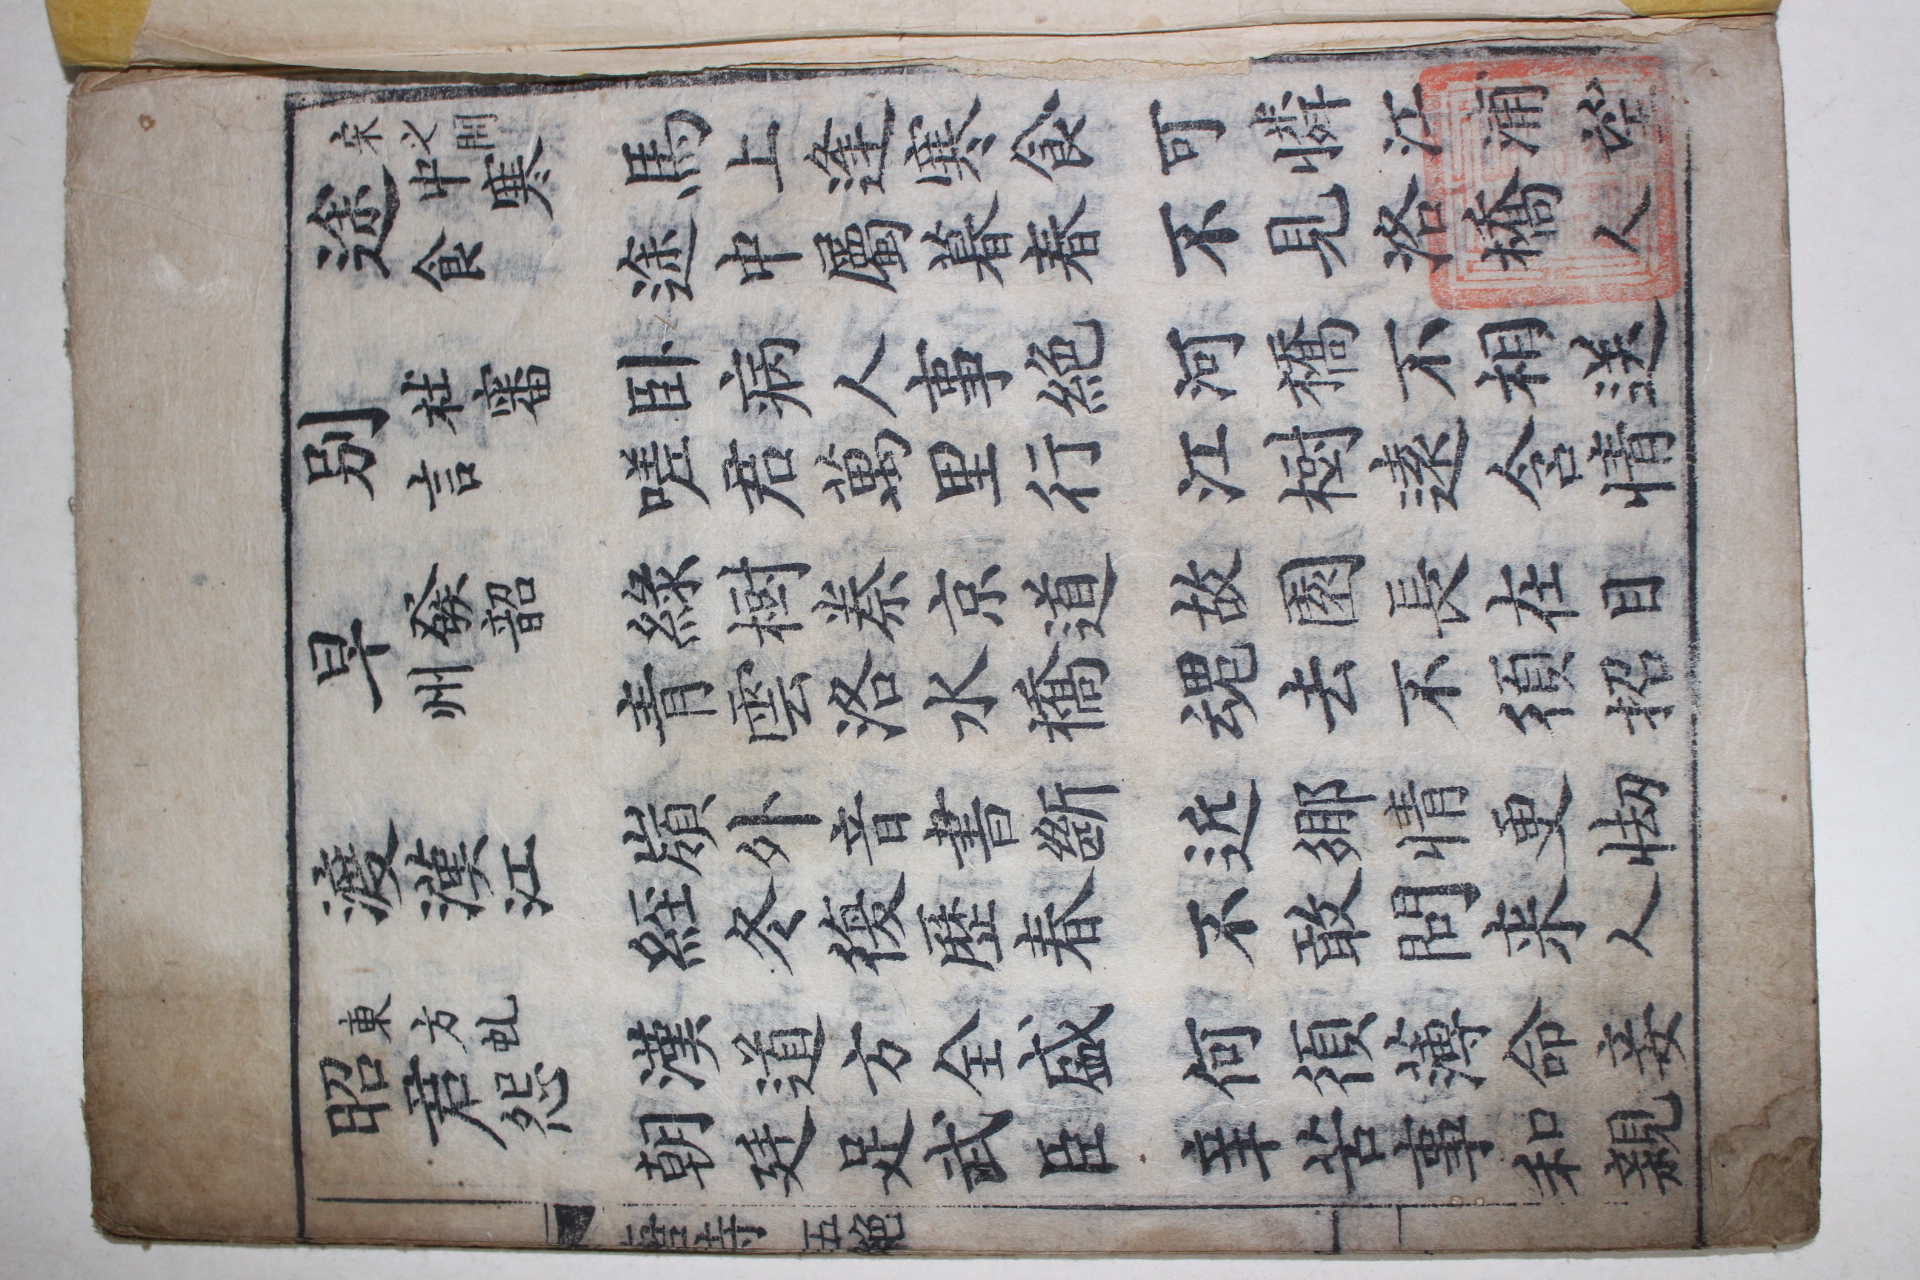 宋之問
途中寒食
馬上逢寒食
途中屬暮春
可憐江浦望
不見洛橋人
別杜審言
卧病人事絶
嗟君萬里行
河橋不相送
江樹遠含情
早發韶州
綠樹秦京道
青雲洛水橋
故園長在目
魂去不須招
渡漢江
嶺外音書斷
經冬復歷春
近鄉情更怯
不敢問来人
東方虬
昭君怨
漢道方全盛
朝廷足武臣
何須薄命妾
辛苦事和親
唐詩 五絶